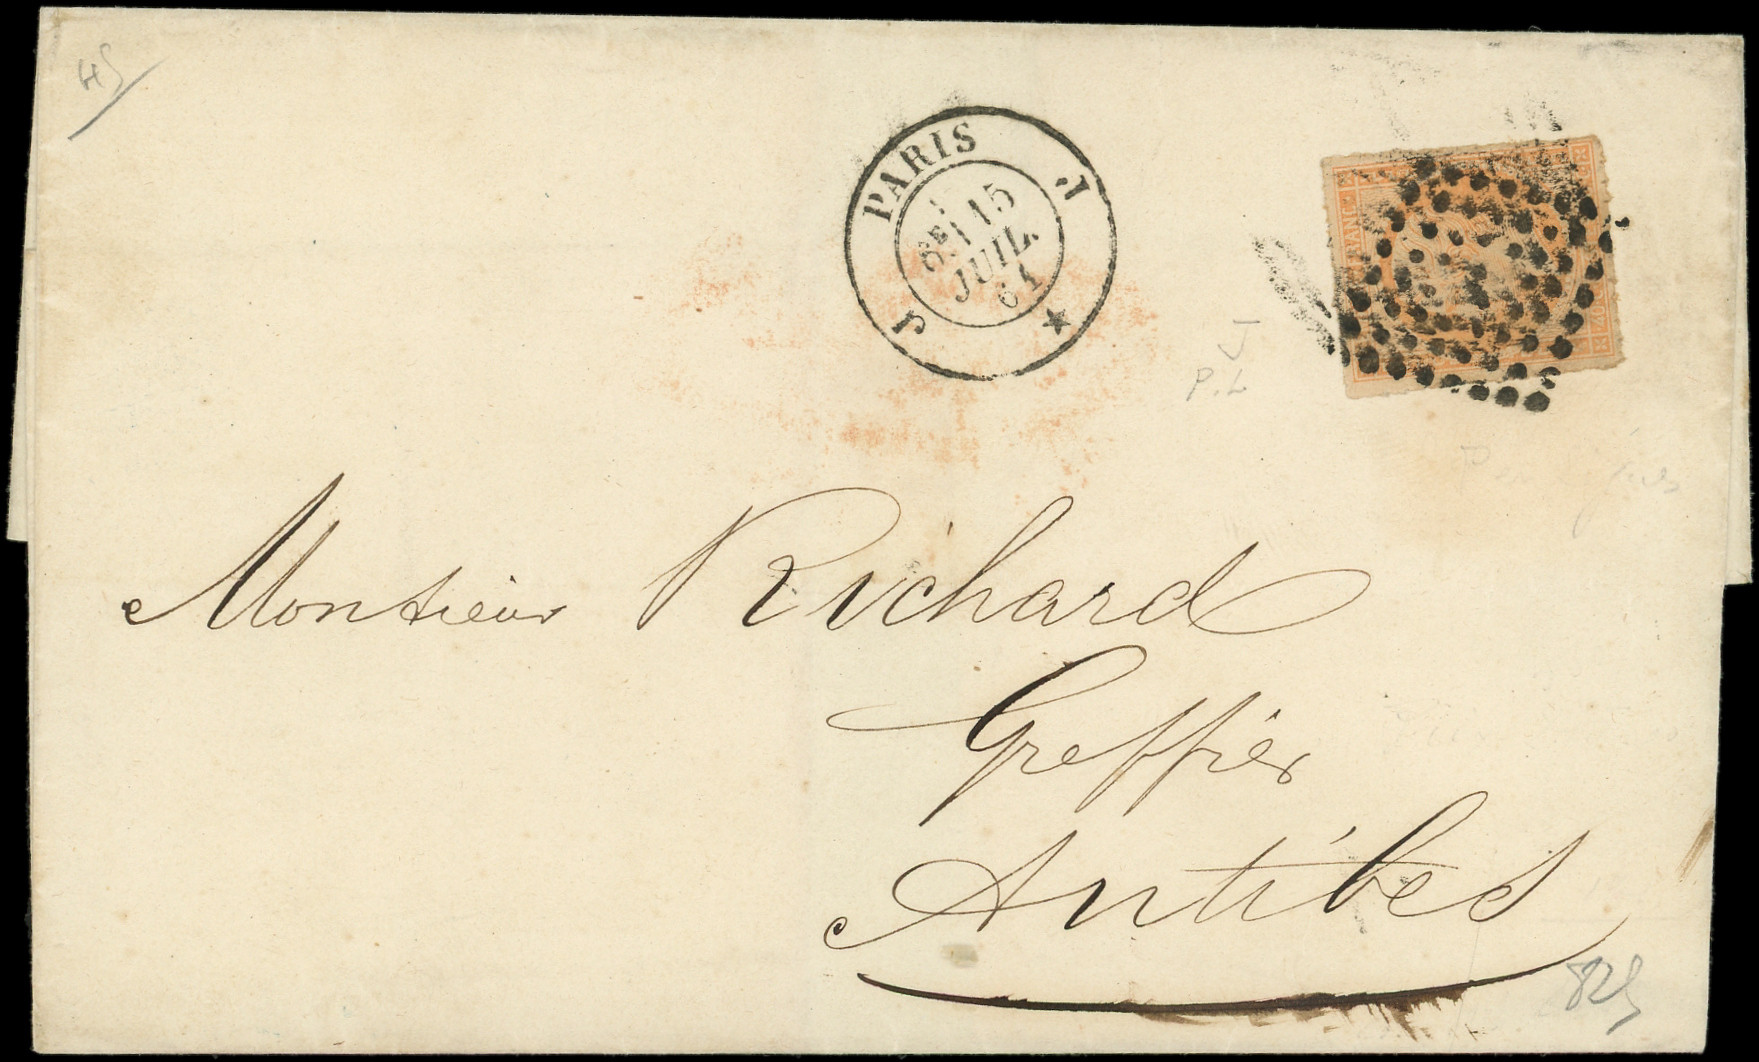 PARIS J
6E 15
JUIL.
61
J
P.L
Monsieur Richard
Greffier
Antibes
825